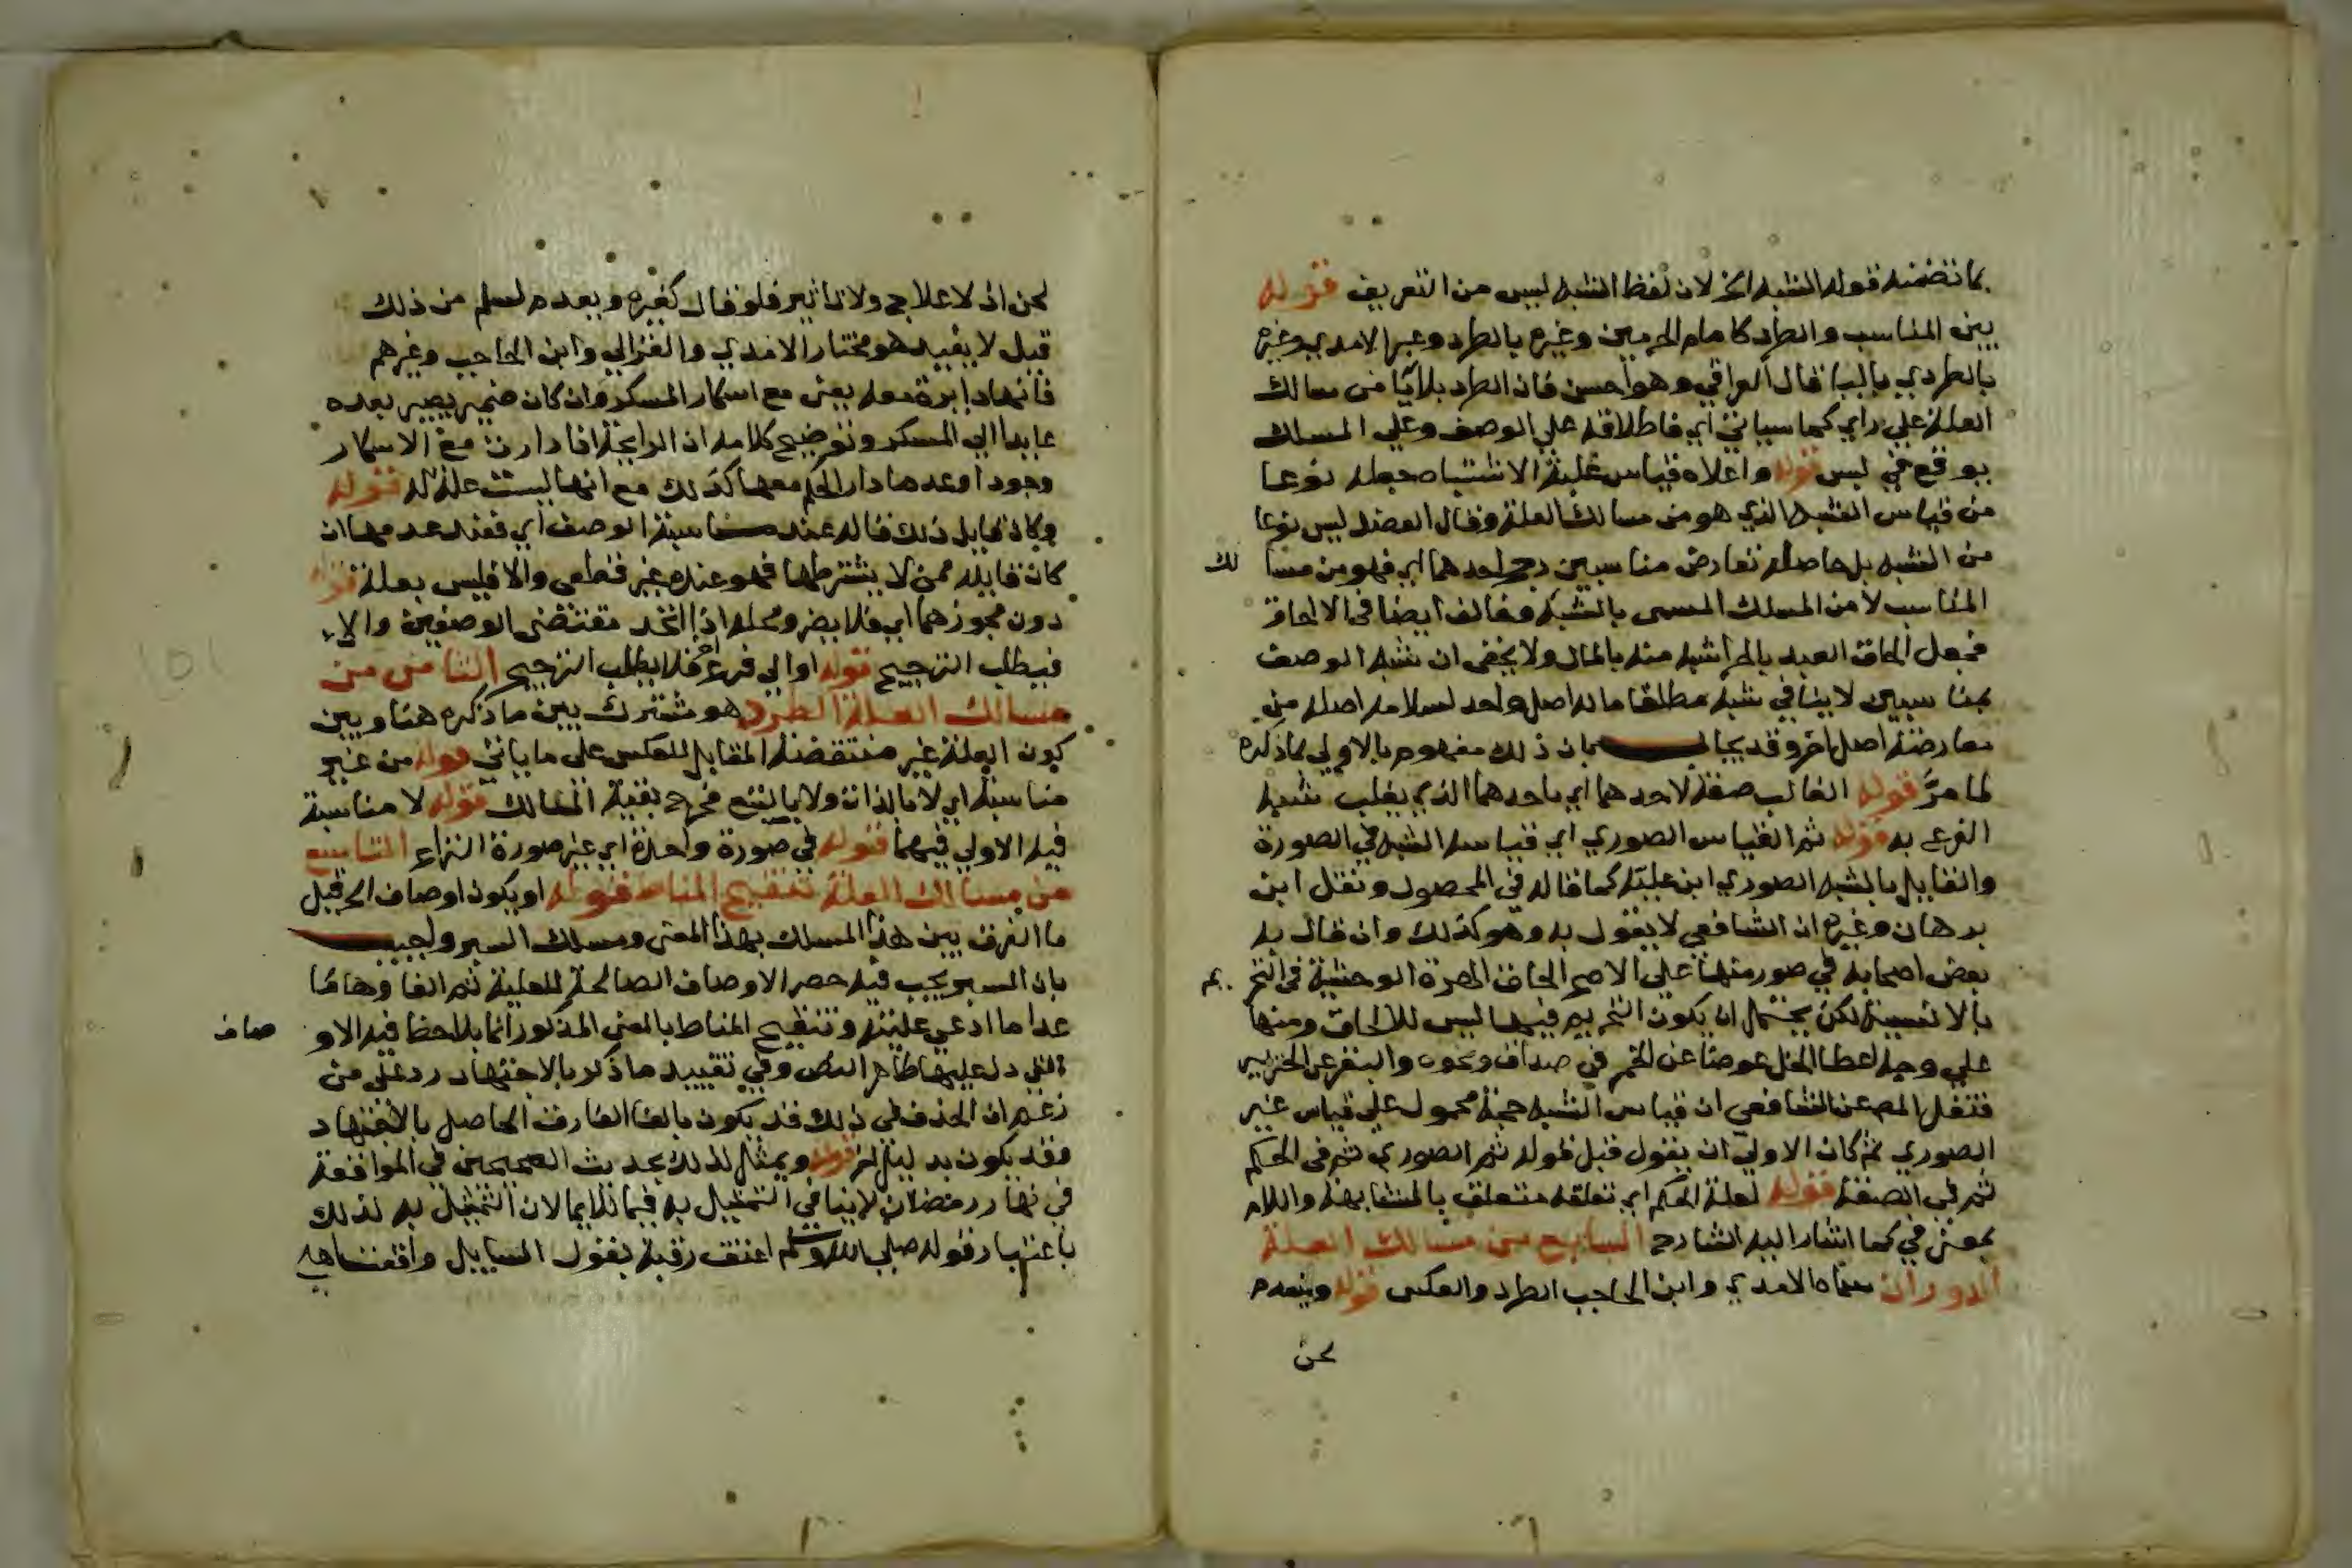 بما تضمنه قوله الشبه الخ لان لفظ الشبه ليس من التعريف قوله
بين المناسب والطرد كامام الحرمين وغيره بالطرد وعبر الامدي وغيره
بالطردي باليا قال العراقي وهو احسن فان الطرد بلا يا من مسالك
العلة علي راي كما سياتي اي فاطلاقه علي الوصف وعلي المسلك
يوقع في لبس قوله واعلاه قياس غلبة الاشتباه جعله نوعا
من قياس الشبه الذي هو من مسالك العلة وقال العضد ليس نوعا
من الشبه بل حاصله تعارض مناسبين رجح احدهما اي فهو من مسا لك
المناسب لا من المسلك المسمى بالشبه وخالف ايضا في الالحاق
فجعل الحاق العبد بالحر اشبه منه بالمال ولا يخفى ان شبه الوصف
بمناسبين لا ينافي شبه مطلقا ماله اصل واحد لسلامه اصله من
معارضة اصل اخر وقد يجاب بان ذلك مفهوم بالاولي لماذكره
لما مر قوله الغالب صفة لاحدهما اي باحدهما الذي يغلب شبه
الفرع به قوله ثم القياس الصوري اي قياس الشبه في الصورة
والقايل بالشبه الصوري ابن علية كما قاله في المحصول ونقل ابن
برهان وغيره ان الشافعي لا يقول به وهو كذلك وان قال به
بعض اصحابه في صور منها علي الاصح الحاق الهرة الوحشية في التحر يم
بالانسية لكن يحتمل ان يكون التحريم فيها ليس للالحاق ومنها
علي وجه اعطا الخل عوضا عن الخمر في صداق ونحوه والبقر عن الخنزير
فنقل المص عن الشافعي ان قياس الشبه حجة محمول علي قياس غير
الصوري ثم كان الاولي ان يقول قبل قوله ثم الصوري ثم في الحكم
ثم في الصفة قوله لعلة الحكم اي تعلقه متعلق بالمشابهة واللام
بمعنى في كما اشار اليه الشارح السابع من مسالك العلة
الدوران سماه الامدي وابن الحاجب الطرد والعكس قوله وينعدم
لحن
لحن اذ لا علاج ولا تاثير فلو قال كغيره وبعدم لسلم من ذلك
قيل لا يفيد هو مختار الامدي والغزالي وابن الحاجب وغيرهم
فانها دايرة معه يعني مع اسكار المسكر وان كان ضمير يصير بعده
عايدا الي المسكر وتوضيح كلامه ان الرايحة اذا دارت مع الاسكار
وجودا وعدما دار الحكم معها كذلك مع انها ليست علة له قوله
وكان قايل ذلك قاله عند مناسبة الوصف اي فعند عدمها ان
كان قايله ممن لا يشترطها فهو عنده غير قطعي والا فليس بعلة قوله
دون مجوزهما اي فلا يضر ومحله اذا اتحد مقتضى الوصفين والا
فيطلب الترجيح قوله او الي فرع اخر فلا يطلب الترجيح الثامن من
مسالك العلة الطرد هو مشترك بين ما ذكره هنا وبين
كون العلة غير منتقضة المقابل للعكس علي ما ياتي قوله من غير
مناسبة اي لا بالذات ولا بالتبع فخرج بقية المسالك قوله لا مناسبة
فيه الاولي فيهما قوله في صورة واحدة اي غير صورة النزاع التاسع
من مسالك العلة تنقيح المناط قوله او يكون اوصاف الخ قيل
ما الفرق بين هذا المسلك بهذا المعنى ومسلك السبر واجيب
بان السبر يجب فيه حصر الاوصاف الصالحة للعلية ثم الغاوها ما
عدا ما ادعي عليته وتنقيح المناط بالمعني المذكور انما يلاحظ فيه الاو صاف
التي دل عليها ظاهر النص وفي تقييد ما ذكر بالاجتهاد رد علي من
زعم ان الحذف في ذلك قد يكون بالغا الفارق الحاصل بالاجتهاد
وقد يكون بدليل اخر قوله ويمثل لذلك بحديث الصحيحين في المواقعة
في نهار رمضان لا ينافي التمثيل به فيما للايما لان التمثيل به لذلك
باعتبار قوله صلي الله وسلم اعتق رقبة بقول السايل واقعت اهلي